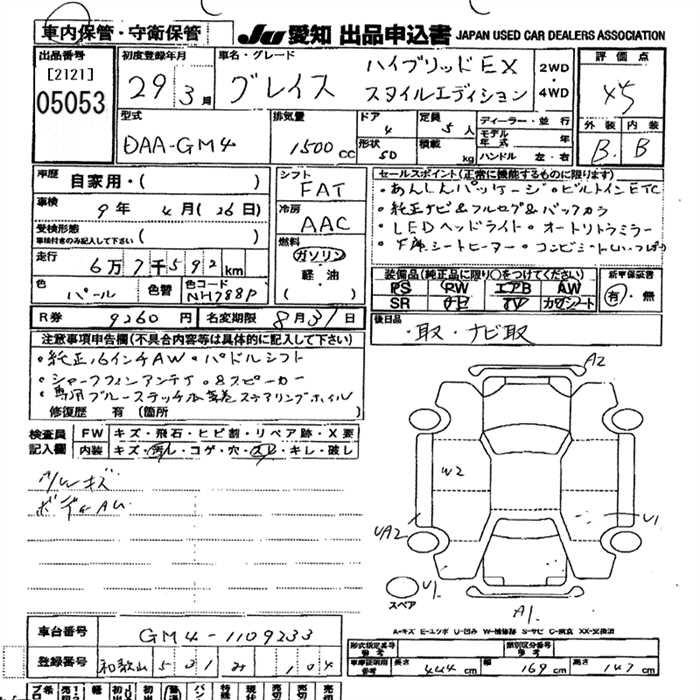 車内保管・守衛保管
JU 愛知 出品申込書 JAPAN USED CAR DEALERS ASSOCIATION
出品番号 [2121] 05053
初度登録年月 29年3月
車名・グレード グレイス ハイブリッドEX スタイルエディション
2WD・4WD
評価点
外装 B. 内装 B
型式 DAA-GM4
排気量 1500cc
ドア 4 形状 SD
定員 5人 積載 kg
ディーラー・並行
モデル年式 年
ハンドル 左・右
車歴 自家用・( )
車検 9年4月(26日)
受検形態 車検付きのみ記入して下さい ( )
走行 6万7千592km
色 パール 色替 色コード NH788P
シフト FAT
冷房 AAC
燃料 ガソリン・軽・油
R券 9260円 名変期限 8月31日
セールスポイント(正常に機能するものに限ります)
・あんしんパッケージ・ビルトインETC
・純正ナビ&フルセグ&バックカメラ
・LEDヘッドライト・オートリトラミラー
装備品(純正品に限り○をつけてください)
PS PW エアB AW
SR ナビ TV カワシート
新車保証書 有・無
後日品 ・取・ナビ取
注意事項申告欄(不具合内容等は具体的に記入して下さい)
・純正16インチAW・パドルシフト
・シャークフィンアンテナ・8スピーカー
・専用ブルーステッチ本革巻ステアリングホイル
修復歴 有(箇所 )
検査員記入欄
FW キズ・飛石・ヒビ割・リペア跡・X要
内装 キズ・汚れ・コゲ・穴・スレ・キレ・破レ
AWキズ
A2
W2
UA2
U1
U1
A1
スペア
A-キズ E-エクボ U-凹み W-補修跡 S-サビ C-腐食 XX-交換済
車台番号 GM4-1109233
登録番号 和歌山 501
形式指定番号
類別区分番号
長さ 444cm 幅 169cm 高さ 147cm